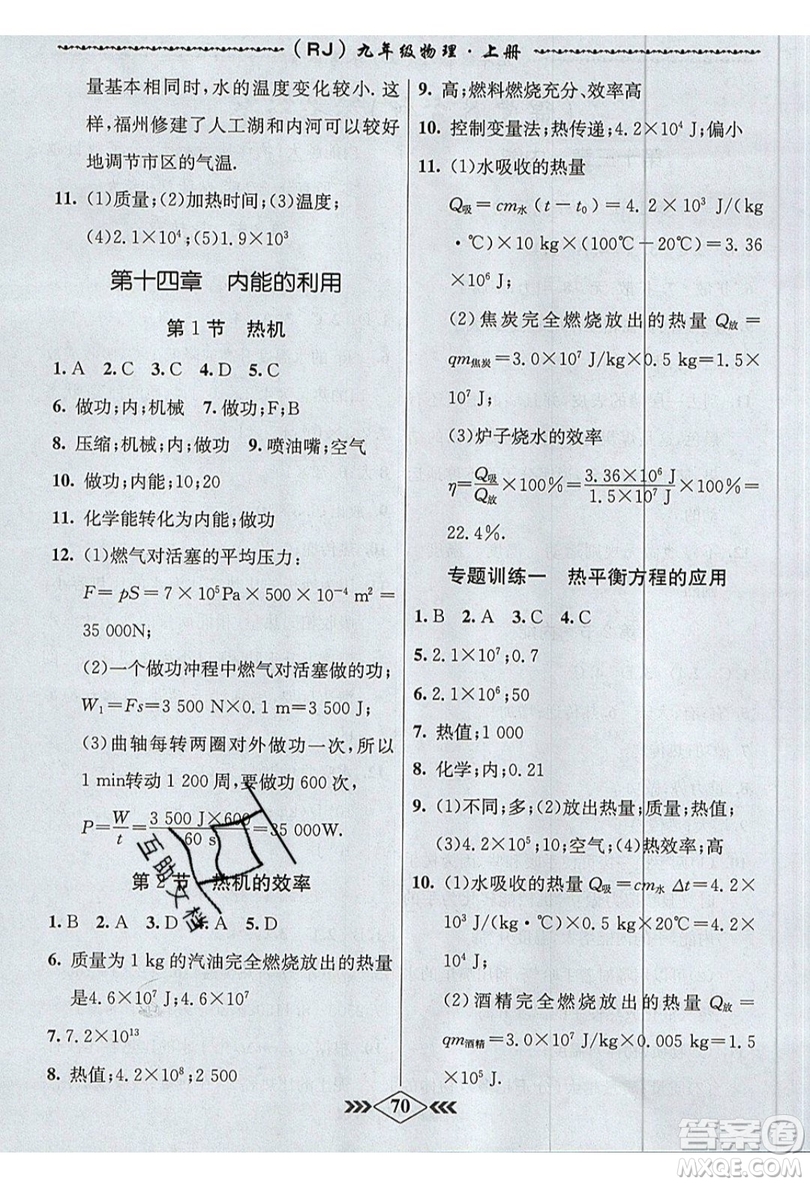 (RJ)九年级物理·上册
量基本相同时,水的温度变化较小.这
样,福州修建了人工湖和内河可以较好
地调节市区的气温.
11. (1)质量;(2)加热时间;(3)温度;
(4)2.1×10⁴;(5)1.9×10³
第十四章 内能的利用
第1节 热机
1. A 2. C 3. C 4. D 5. C
6. 做功;内;机械 7. 做功;F;B
8. 压缩;机械;内;做功 9. 喷油嘴;空气
10. 做功;内能;10;20
11. 化学能转化为内能;做功
12. (1)燃气对活塞的平均压力:
F=pS=7×10⁵Pa×500×10⁻⁴ m²=
35 000N;
(2)一个做功冲程中燃气对活塞做的功:
W₁=Fs=3 500 N×0.1 m=3 500J;
(3)曲轴每转两圈对外做功一次,所以
1 min转动 1 200 周,要做功 600 次,
P=W/t=3 500 J×600/60 s=35 000W.
第2节 热机的效率
1. B 2. A 3. D 4. A 5. D
6. 质量为 1 kg 的汽油完全燃烧放出的热量
是4.6×10⁷J;4.6×10⁷
7. 7.2×10¹³
8. 热值;4.2×10⁸;2 500
9. 燃料燃烧充分、效率高
10. 控制变量法;热传递;4.2×10⁴ J;偏小
11. (1)水吸收的热量
Q吸=cm水(t-t₀)=4.2×10³J/(kg
·℃)×10kg×(100℃-20℃)=3.36
×10⁶ J;
(2)焦炭完全燃烧放出的热量 Q放=
qm焦炭=3.0×10⁷ J/kg×0.5 kg=1.5
×10⁷J;
(3)炉子烧水的效率
η=Q吸/Q放×100%=3.36×10⁶ J/1.5×10⁷J×100%=
22.4%.
专题训练一 热平衡方程的应用
1. B 2. A 3. C 4. C
5. 2.1×10⁷;0.7
6. 2.1×10⁶;50
7. 热值;1 000
8. 化学;内;0.21
9. (1)不同;多;(2)放出热量;质量;热值;
(3)4.2×10⁵;10;空气;(4)热效率;高
10. (1)水吸收的热量 Q吸=cm水 Δt=4.2×
10³ J/(kg·℃)×0.5kg×20℃=4.2×
10⁴J;
(2)酒精完全燃烧放出的热量 Q放=
qm酒精=3.0×10⁷ J/kg×0.005 kg=
1.5×10⁵J;
70
互助文档
答案圈
MXQE.COM